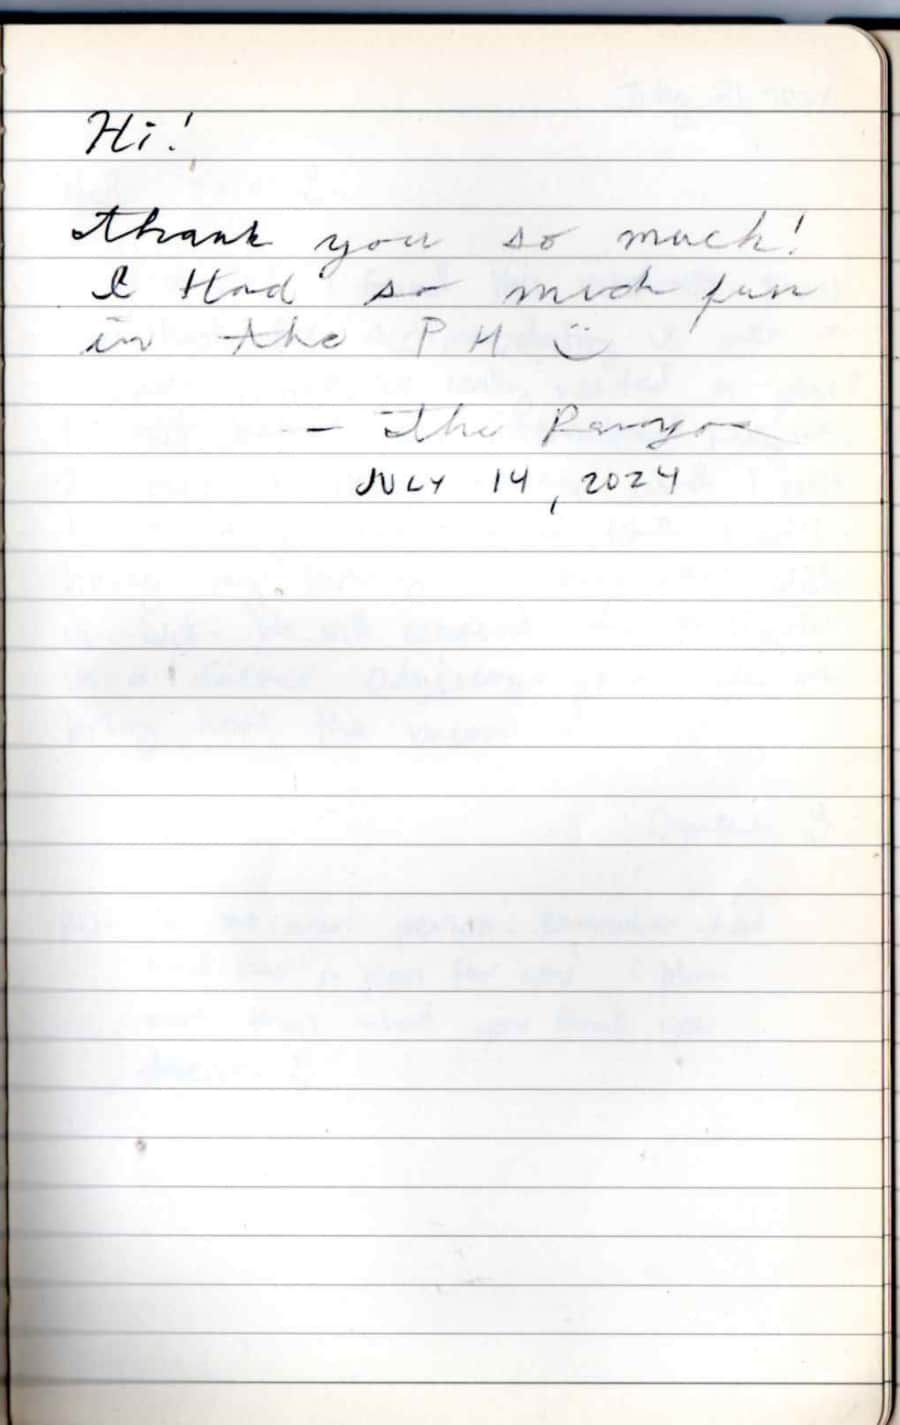 Hi!
Thank you so much!
I Had so much fun
in the PH ☺
- The
JULY 14, 2024